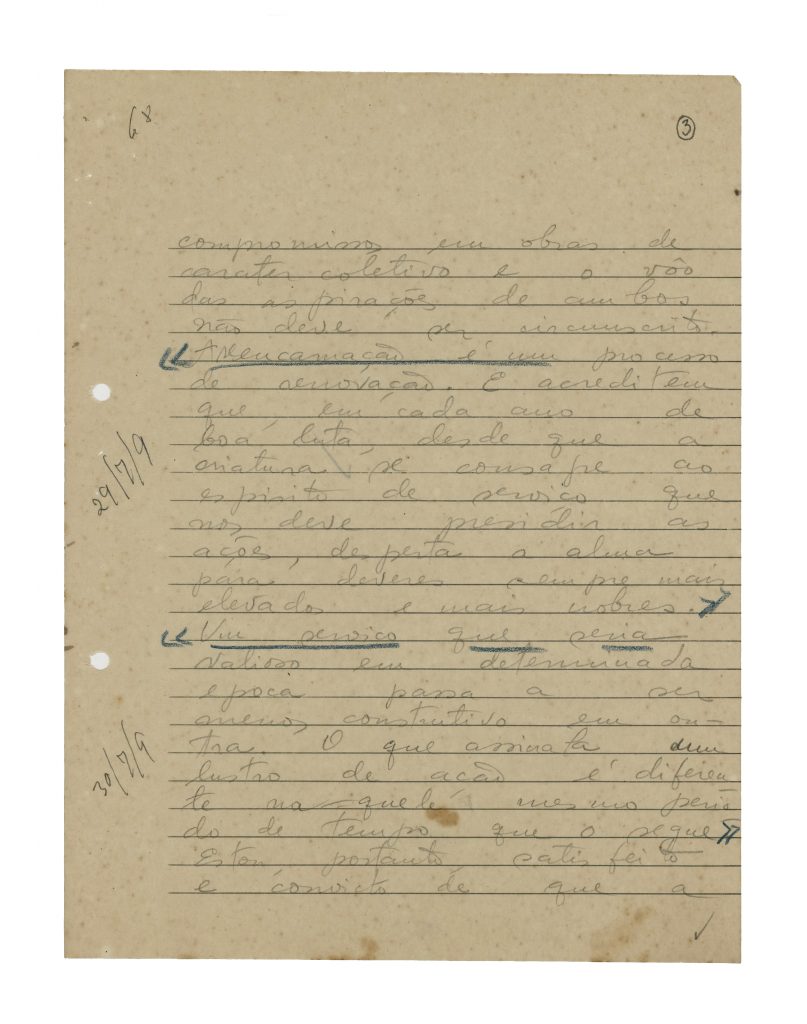 68
3
compromissos em obras de
carater coletivo e o vôo
das aspirações de ambos
não deve ser circunscrito.
« A reencarnação é um processo
de renovação. E acreditem
que, em cada ano de
boa luta, desde que a
criatura se consagre ao
espirito de serviço que
nos deve presidir as
ações, desperta a alma
para deveres sempre mais
elevados e mais nobres. »
« Um serviço que seria
valioso em determinada
epoca passa a ser
menos construtivo em ou-
tra. O que assinala um
lustro de ação é diferen
te naquele mesmo perio
do de tempo que o segue »
Estou portanto, satisfeito
e convicto de que a
29/7/9
30/7/9